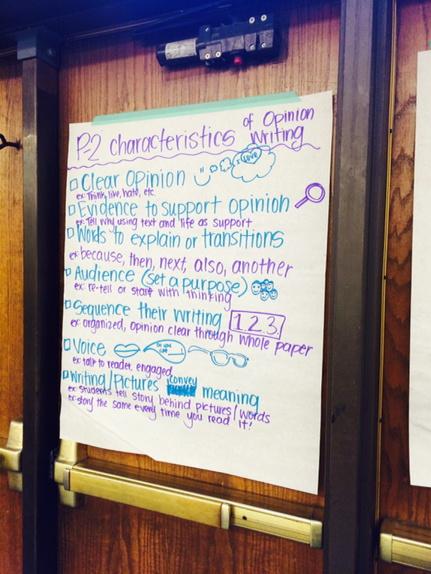 P-2 characteristics of Opinion Writing
I LOVE
Clear Opinion
ex: Think, like, hate, etc.
Evidence to support opinion
ex: Tell why using text and life as support
Words to explain or transitions
ex: because, then, next, also, another
Audience (set a purpose)
ex: re-tell or start with thinking
Sequence their writing 1 2 3
ex: organized, opinion clear through whole paper
Voice
ex: talk to reader, engaged
Writing/Pictures convey meaning
ex: students tell story behind pictures/words
ex: story the same every time you read it!